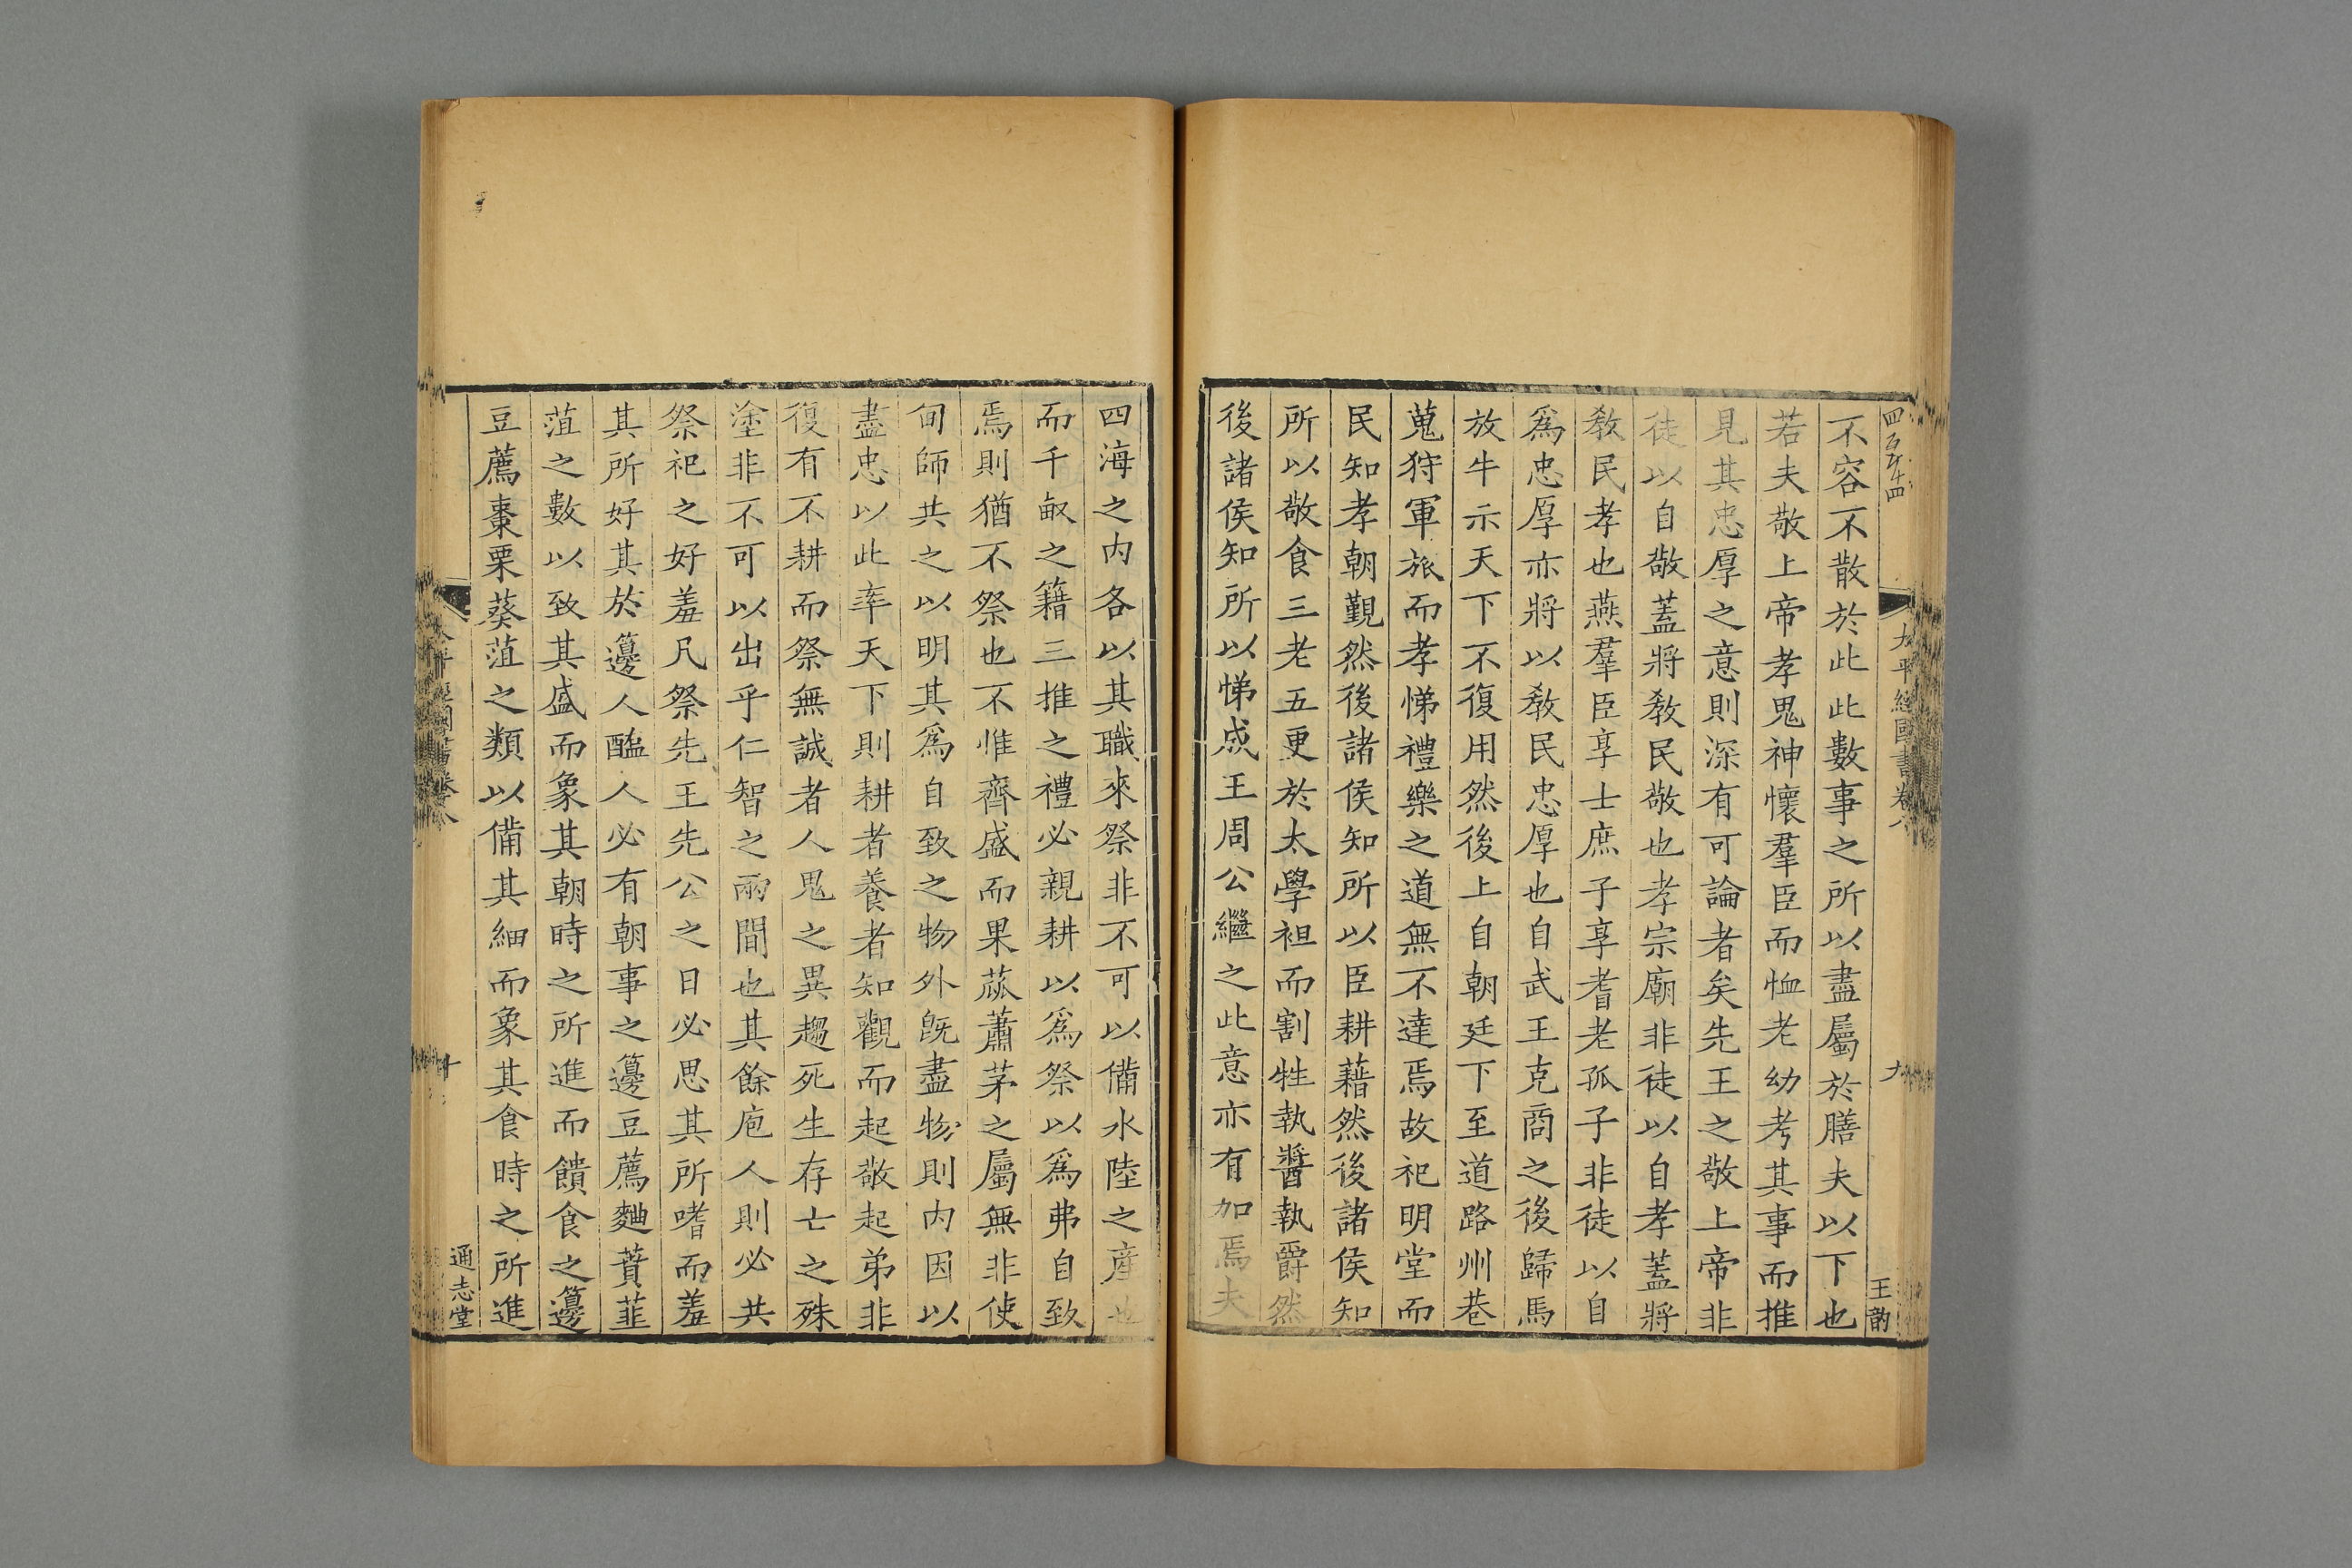 不容不散於此此數事之所以盡屬於膳夫以下也
若夫敬上帝孝鬼神懷羣臣而恤老幼考其事而推
見其忠厚之意則深有可論者矣先王之敬上帝非
徒以自敬蓋將教民敬也孝宗廟非徒以自孝蓋將
教民孝也燕羣臣享士庶子享耆老孤子非徒以自
爲忠厚亦將以教民忠厚也自武王克商之後歸馬
放牛示天下不復用然後上自朝廷下至道路州巷
蒐狩軍旅而孝悌禮樂之道無不達焉故祀明堂而
民知孝朝覲然後諸侯知所以臣耕藉然後諸侯知
所以敬食三老五更於太學袒而割牲執醬執爵然
後諸侯知所以悌成王周公繼之此意亦有加焉夫
太平經國書卷八
九
王韵
四海之内各以其職來祭非不可以備水陸之產也
而千畝之籍三推之禮必親耕以爲祭以爲弗自致
焉則猶不祭也不惟齊盛而果蓏蕭茅之屬無非使
甸師共之以明其爲自致之物外旣盡物則内因以
盡忠以此率天下則耕者養者知觀而起敬起弟非
復有不耕而祭無誠者人鬼之異趨死生存亡之殊
塗非不可以出乎仁智之兩間也其餘庖人則必共
祭祀之好羞凡祭先王先公之日必思其所嗜而羞
其所好其於籩人醢人必有朝事之籩豆薦麯蕡韭
菹之數以致其盛而象其朝時之所進而饋食之籩
豆薦棗栗葵菹之類以備其細而象其食時之所進
十
通志堂